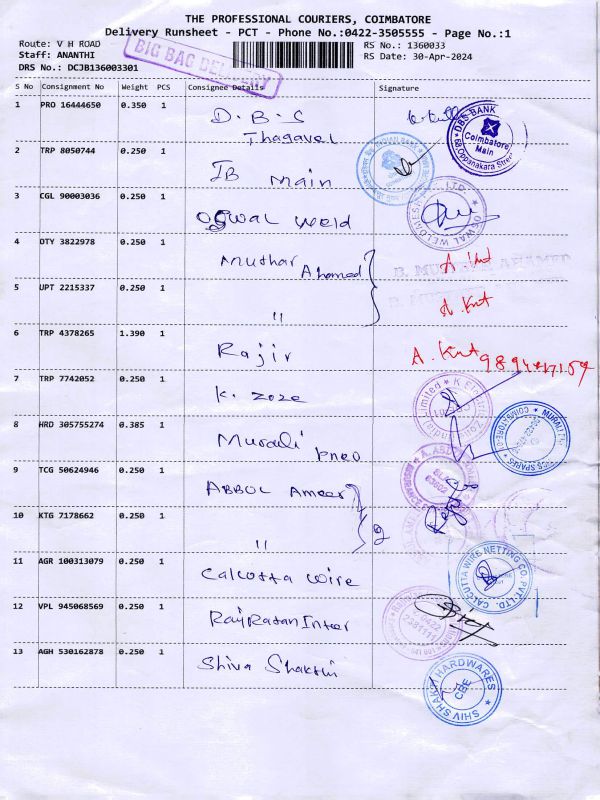 THE PROFESSIONAL COURIERS, COIMBATORE
Delivery Runsheet - PCT - Phone No.:0422-3505555 - Page No.:1
Route: V H ROAD
RS No.: 1360033
Staff: ANANTHI
RS Date: 30-Apr-2024
DRS No.: DCJB136003301
BIG BAG DELIVERY
S No Consignment No Weight PCS Consignee Details Signature
1 PRO 16444650 0.350 1 D.B.S
Thagavel
DBS BANK
Coimbatore
Main
Oppanakara Street
2 TRP 8050744 0.250 1 IB Main
INDIAN BANK
3 CGL 90003036 0.250 1 Oswal Weld
OSWAL
4 OTY 3822978 0.250 1 Muthar Ahamed
AHAMED
5 UPT 2215337 0.250 1 "
6 TRP 4378265 1.390 1 Rajir
7 TRP 7742052 0.250 1 K. Zoze
Limited
8 HRD 305755274 0.385 1 Murali pneo
9 TCG 50624946 0.250 1 ABBUL Ameer
10 KTG 7178662 0.250 1 "
2
11 AGR 100313079 0.250 1 Calcutta wire
CALCUTTA WIRE NETTING CO. PVT. LTD.
12 VPL 945068569 0.250 1 RajRatan Inter
13 AGH 530162878 0.250 1 Shiva Shakthi
SHIV SHAKTI HARDWARES
CBE